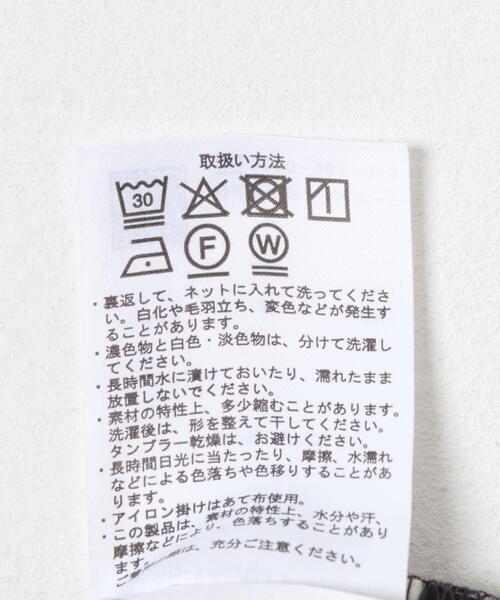 取扱い方法
30
F W
・裏返して、ネットに入れて洗ってくださ
い。白化や毛羽立ち、変色などが発生す
ることがあります。
・濃色物と白色・淡色物は、分けて洗濯し
てください。
・長時間水に漬けておいたり、濡れたまま
放置しないでください。
・素材の特性上、多少縮むことがあります。
洗濯後は、形を整えて干してください。
タンブラー乾燥は、お避けください。
・長時間日光に当たったり、摩擦、水濡れ
などによる色落ちや色移りすることがあ
ります。
・アイロン掛けはあて布使用。
・この製品は、素材の特性上、水分や汗、
摩擦などにより、色落ちすることがあり
ます。
は、充分ご注意ください。